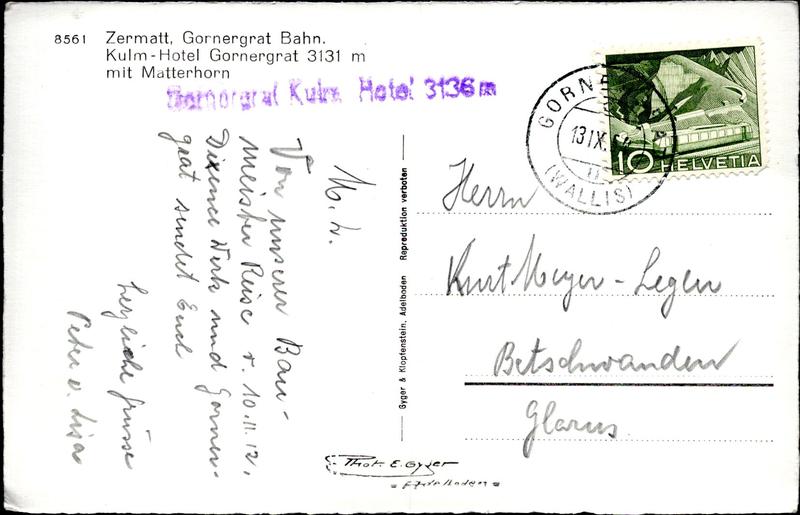 8561 Zermatt, Gornergrat Bahn.
Kulm-Hotel Gornergrat 3131 m
mit Matterhorn
Gornergrat Kulm Hotel 3136 m
GORNE
13 IX.
(WALLIS)
10 HELVETIA
M. L.
Von unserer Bau-
meister Reise v. 10. 11. 12.
Dixence Werk und Gorner-
grat sendet Euch
herzliche Grüsse
Peter u. Lisa
Gyger & Klopfenstein, Adelboden Reproduktion verboten
Herrn
Kurt Meyer-Legler
Betschwanden
Glarus
Phot. E. Gyger
Adelboden